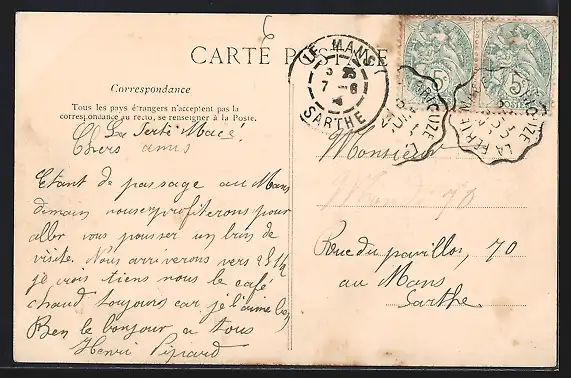 6
CARTE POSTALE
Correspondance
Tous les pays étrangers n'acceptent pas la
correspondance au recto, se renseigner à la Poste.
La Ferté Macé
Chers amis
Etant de passage au Mans
demain nous profiterons pour
aller vous pousser un brin de
visite. Nous arriverons vers 2 h 1/4
je crois tiens nous le café
chaud toujours car je l'aime bien
Ben le bonjour a tous
Henri
LE MANS
7 - 6
SARTHE
5c
5c
POSTES
LA FERTÉ
Monsieur
70
Rue du pavillon, 70
au Mans
Sarthe